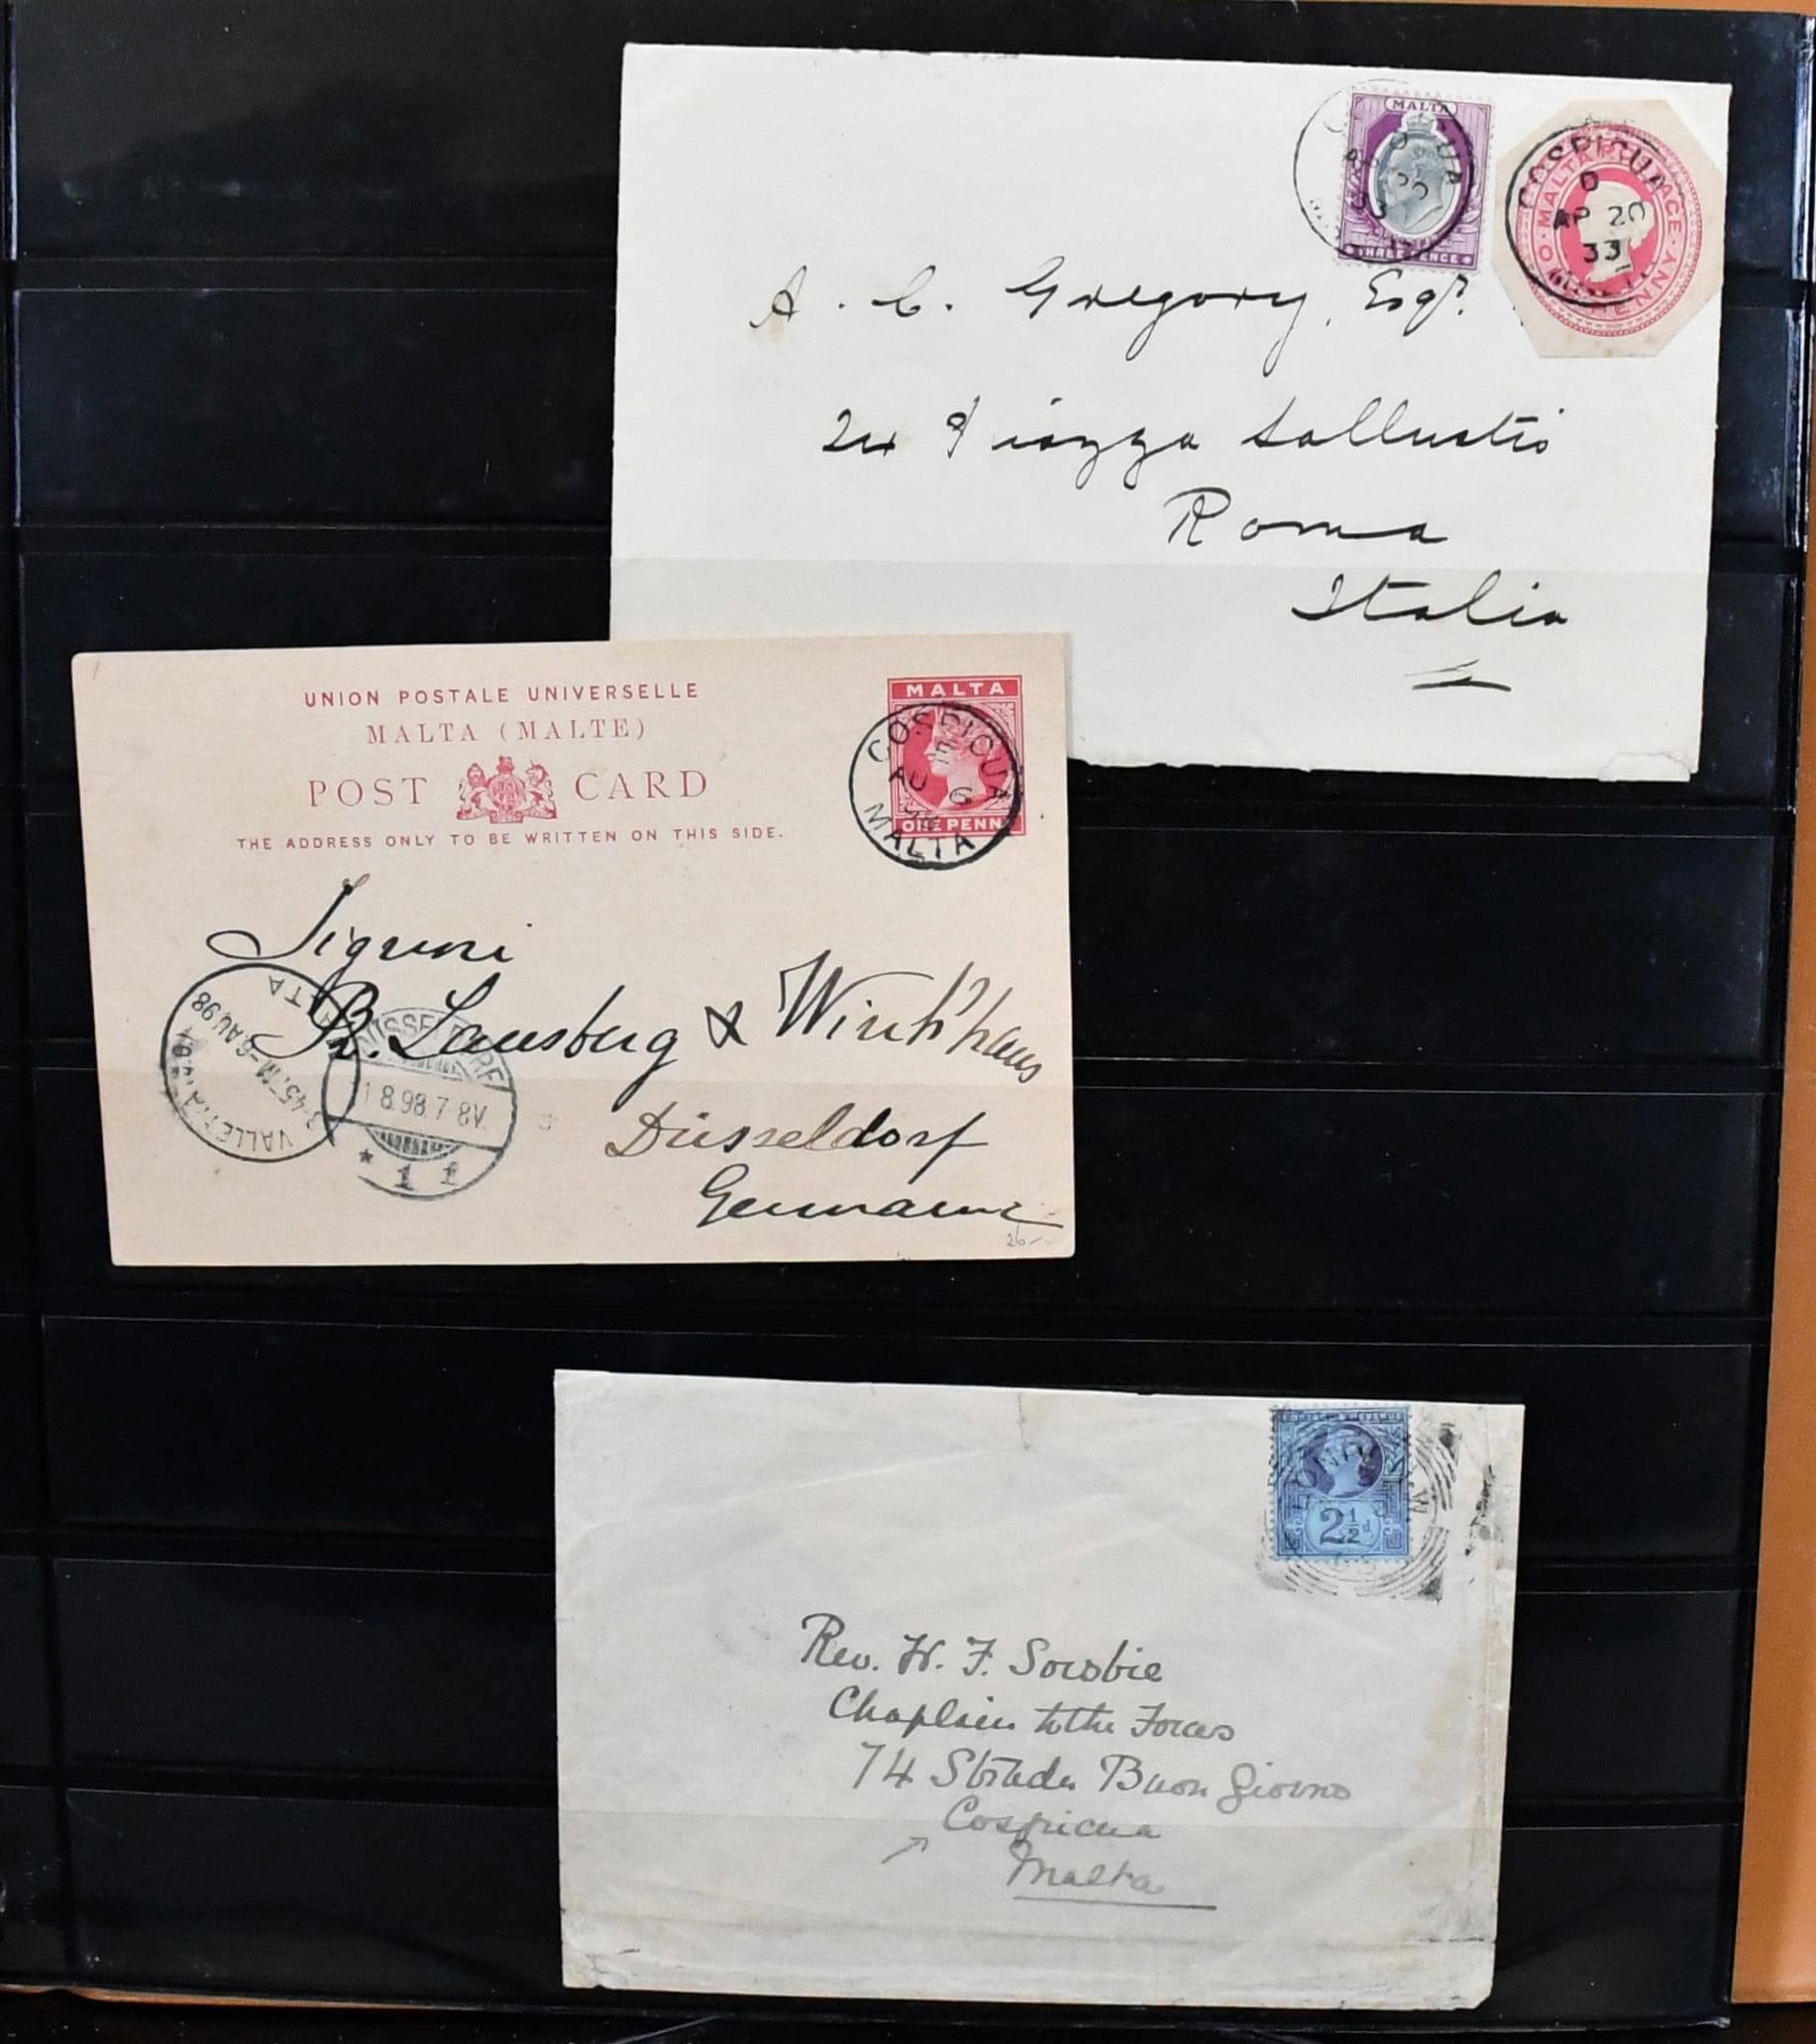 MALTA
THREE PENCE
COSPICUA
D
AP 20
33
MALTA POSTAGE
ONE PENNY
A. C. Gregory, Esqr.
24 Piazza Sallustio
Roma
Italia
UNION POSTALE UNIVERSELLE
MALTA (MALTE)
POST CARD
THE ADDRESS ONLY TO BE WRITTEN ON THIS SIDE.
MALTA
ONE PENNY
COSPICUA
E
AU 6
98
MALTA
Signori
R. Lansberg & Winkhaus
Düsseldorf
26-
VALLETTA MALTA
3.45 PM-6 AU 98
DÜSSELDORF
8.98.7-8V.
* 1 1
2½d
Rev. H. F.
Chaplain to the Forces
74 Strada Buon Giorno
Cospicua
Malta